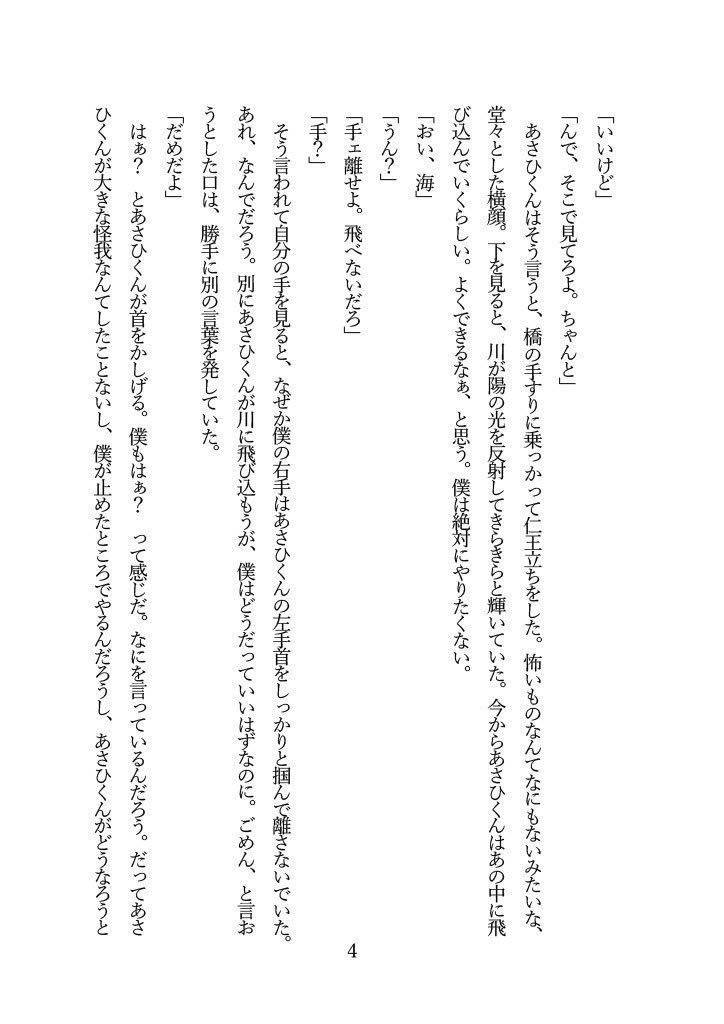 「いいけど」
「んで、そこで見てろよ。ちゃんと」
　あさひくんはそう言うと、橋の手すりに乗っかって仁王立ちをした。怖いものなんてなにもないみたいな、
堂々とした横顔。下を見ると、川が陽の光を反射してきらきらと輝いていた。今からあさひくんはあの中に飛
び込んでいくらしい。よくできるなぁ、と思う。僕は絶対にやりたくない。
「おい、海」
「うん？」
「手ェ離せよ。飛べないだろ」
「手？」
　そう言われて自分の手を見ると、なぜか僕の右手はあさひくんの左手首をしっかりと掴んで離さないでいた。
あれ、なんでだろう。別にあさひくんが川に飛び込もうが、僕はどうだっていいはずなのに。ごめん、と言お
うとした口は、勝手に別の言葉を発していた。
「だめだよ」
　はぁ？　とあさひくんが首をかしげる。僕もはぁ？　って感じだ。なにを言っているんだろう。だってあさ
ひくんが大きな怪我なんてしたことないし、僕が止めたところでやるんだろうし、あさひくんがどうなろうと
4